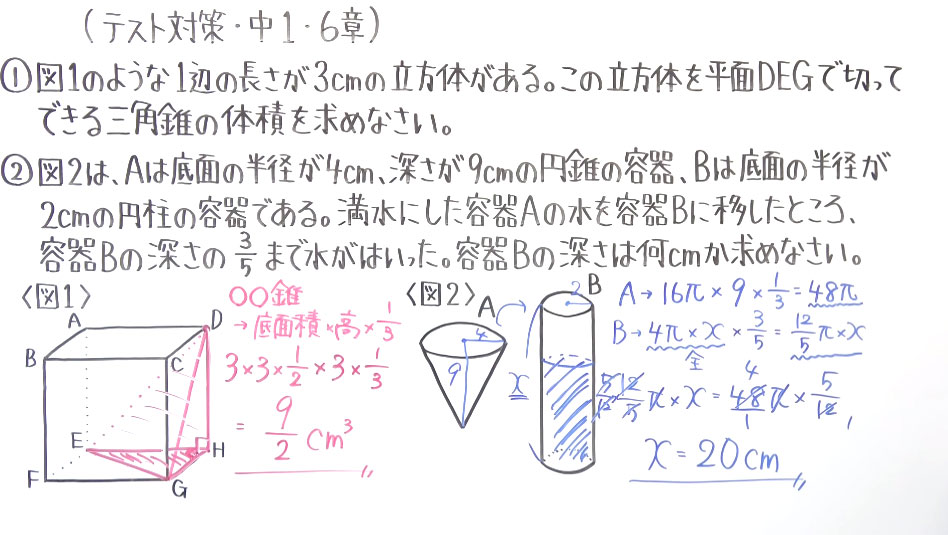 (テスト対策・中1・6章)
①図1のような1辺の長さが3cmの立方体がある。この立方体を平面DEGで切って
できる三角錐の体積を求めなさい。
②図2は、Aは底面の半径が4cm、深さが9cmの円錐の容器、Bは底面の半径が
2cmの円柱の容器である。満水にした容器Aの水を容器Bに移したところ、
容器Bの深さの3/5まで水がはいった。容器Bの深さは何cmか求めなさい。
〈図1〉
A
D
B
C
E
H
F
G
〇〇錐
→底面積×高×1/3
3×3×1/2×3×1/3
=9/2cm³
〈図2〉
A
4
9
B
2
x
A→16π×9×1/3=48π
B→4π×x×3/5=12/5π×x
全
5/12 12/5π×x=48π×5/12
4
1
1
x=20cm